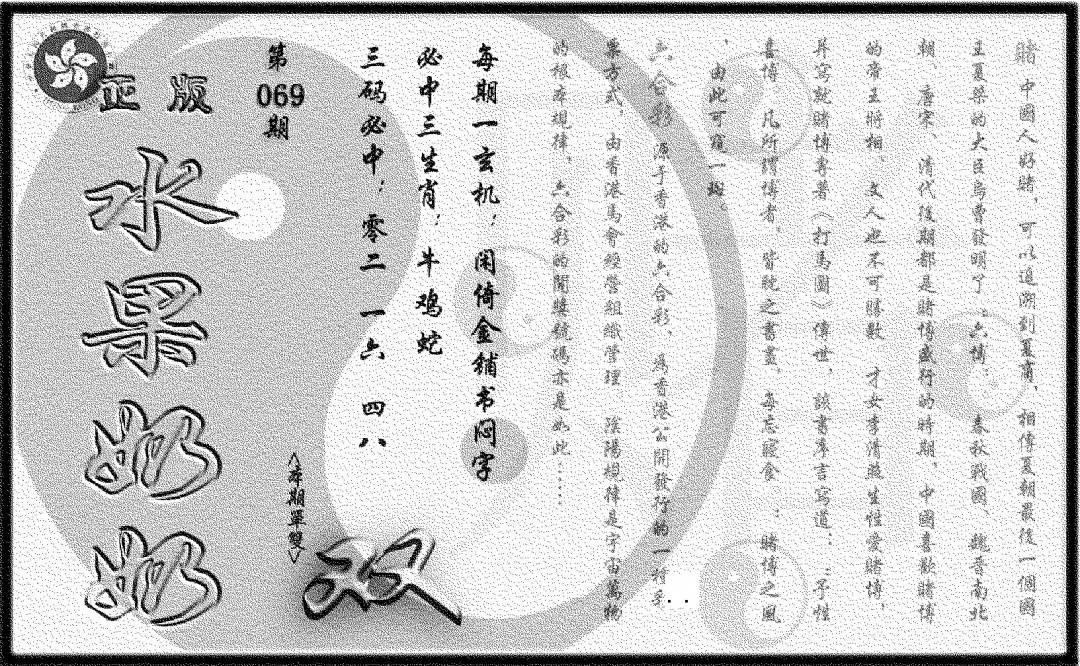 賭 中國人好賭，可以追溯到夏商，相傳夏朝最後一個國
王夏桀的大臣烏曹發明了：六博； 春秋戰國、魏晉南北
朝、唐宋、清代後期都是賭博盛行的時期，中國喜歡賭博
的帝王將相、文人也不可勝數 才女李清照生性愛賭博，
并寫就賭博專著（打馬圖）傳世，該書序言寫道：：予性
喜博，凡所謂博者，皆耽之晝，每忘寢食 ：賭博之風
，由此可窺一斑。
六合彩 源于香港的六合彩，為香港公開發行的一種
票方式，由香港馬會經營組織管理 陰陽規律是宇宙萬物
的根本規律，六合彩的開獎號碼亦是如此......
每期一玄机：闲倚金铺书闷字
必中三生肖：牛鸡蛇
三码必中：零二 一六 四八
第
069
期
<本期單雙>
双
正版
水果奶奶